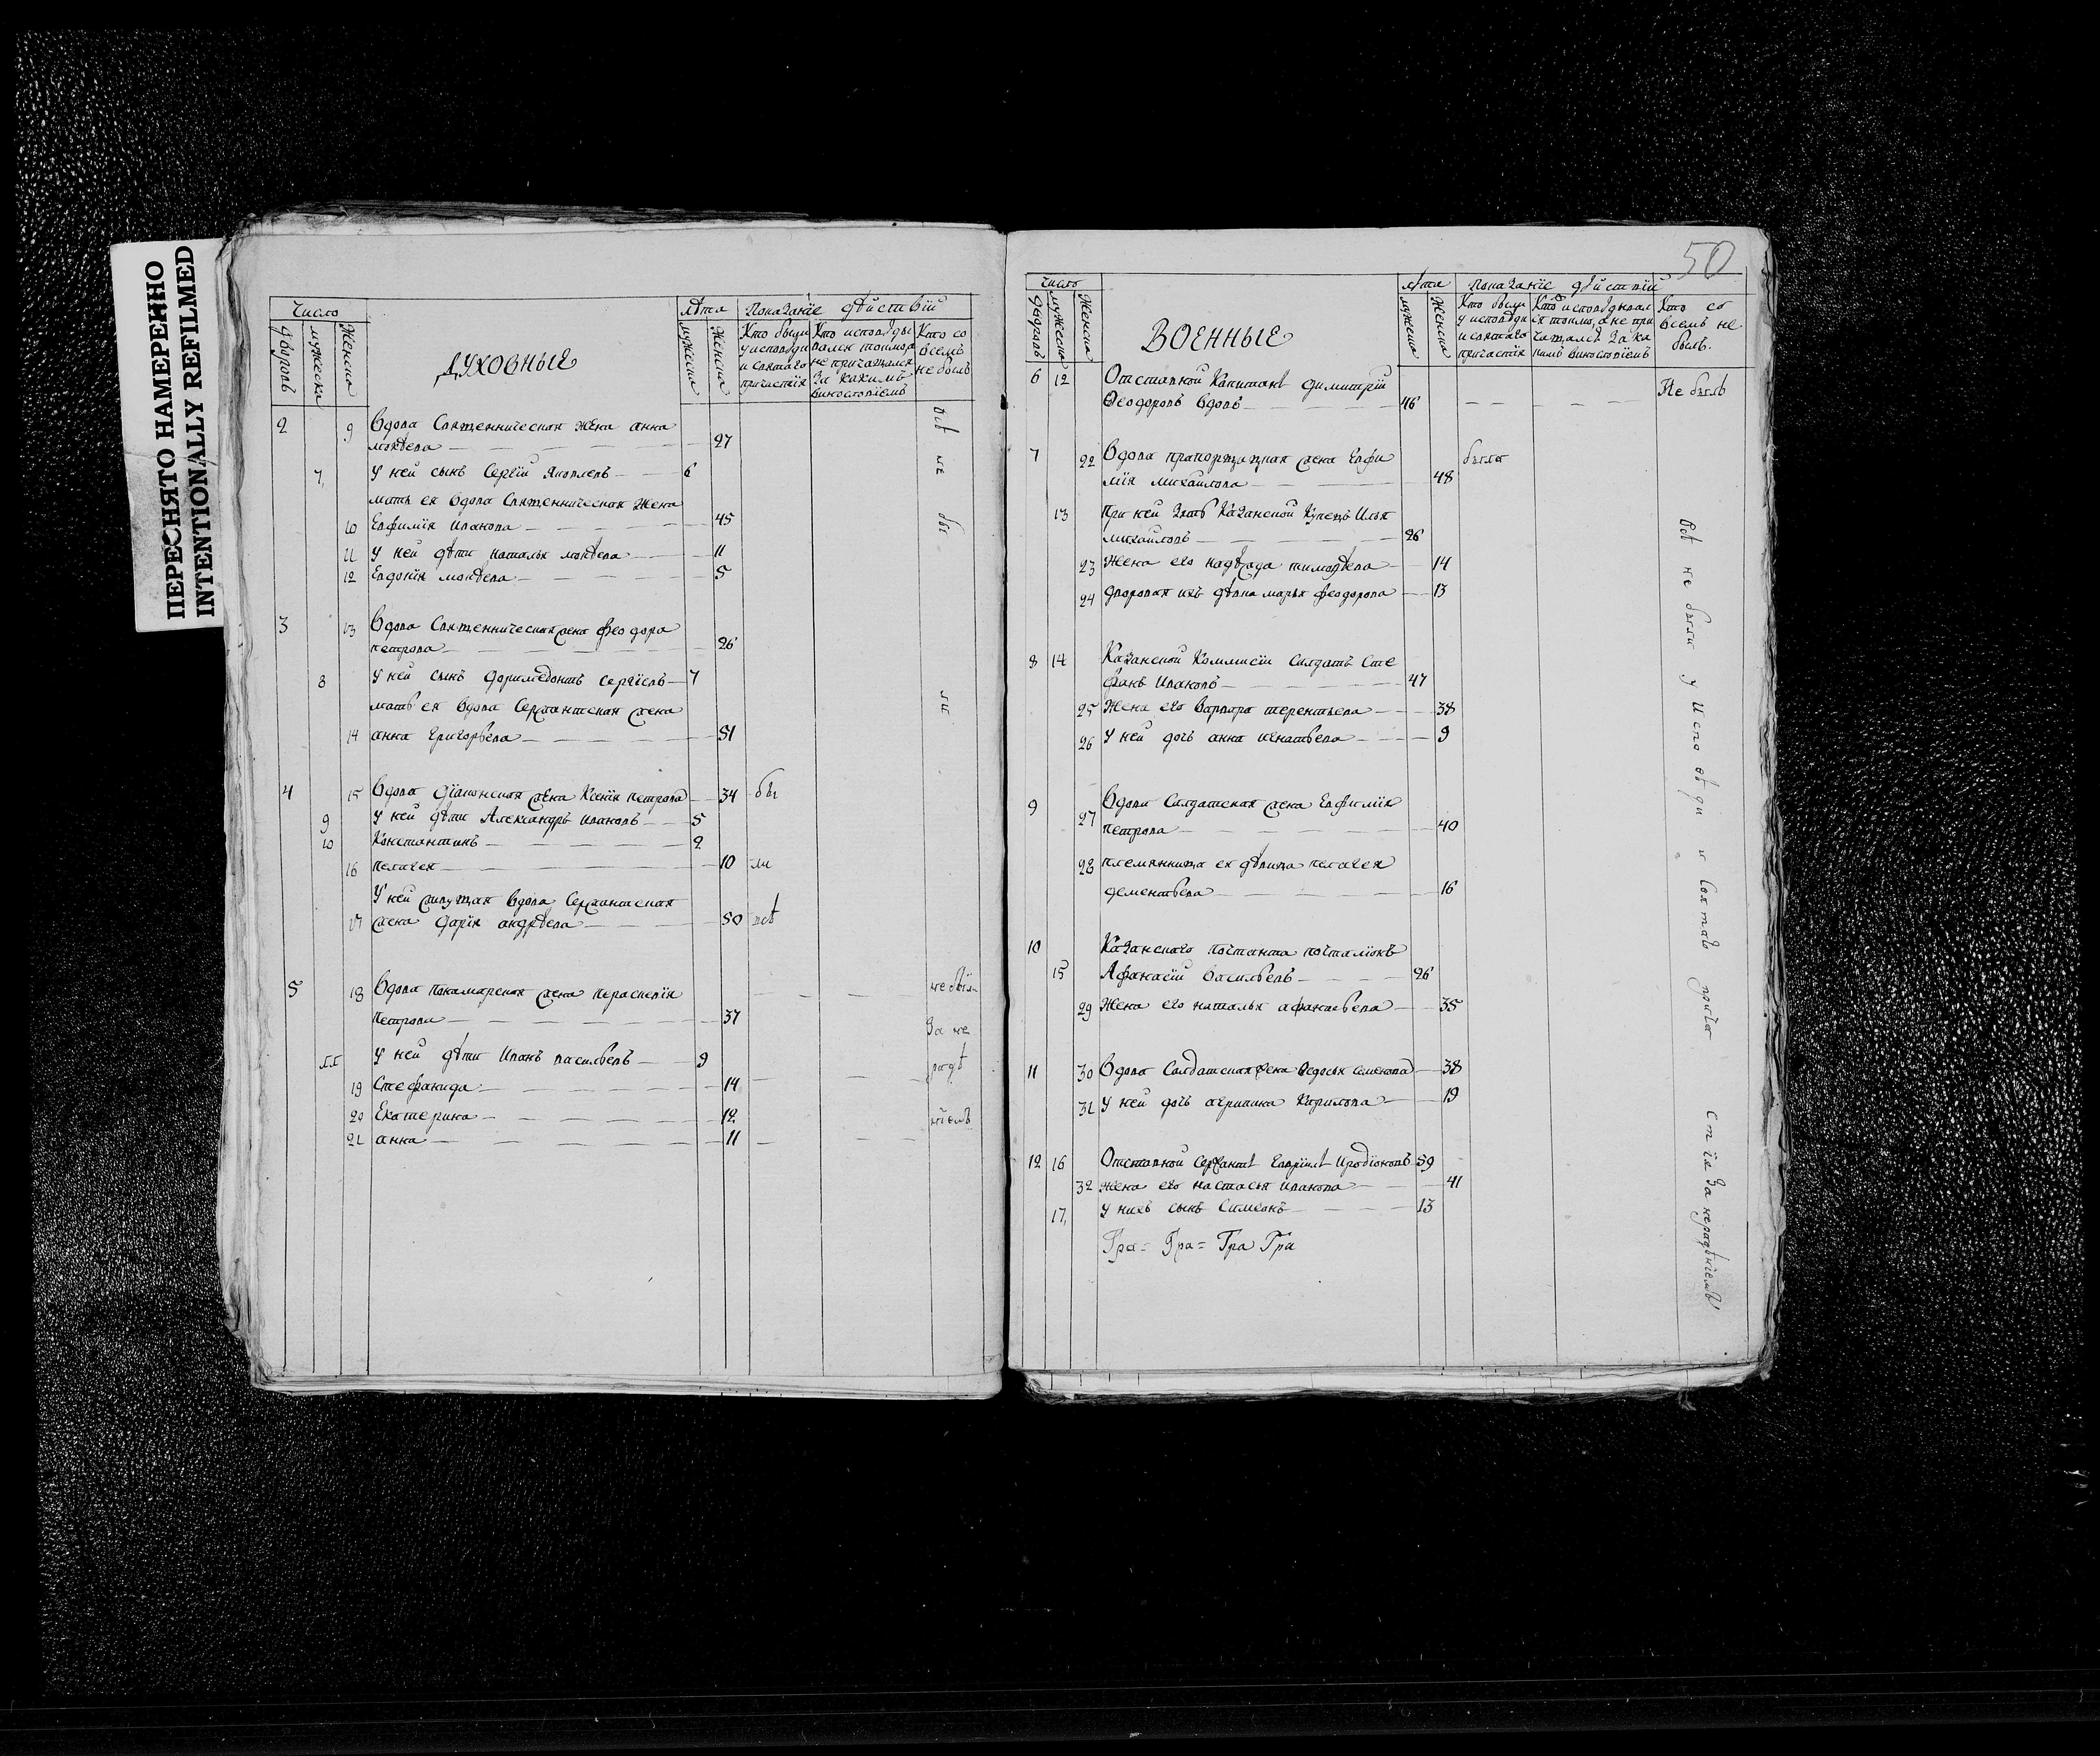 ПЕРЕСНЯТО НАМЕРЕННО
INTENTIONALLY REFILMED
Число
Дворовъ
мужеска
Женска
ДУХОВНЫЕ
лѣта
мужеска
Женска
Показанїе дѣйствїй
Кто были у исповѣди и святаго причастїя
Кто исповѣдывался токмо, а не причащался за какимъ винословїемъ
Кто со всемъ не былъ
2 9 Вдова Священническая Жена анна
моѵсеева 27
7 У ней сынъ Сергїй Яковлевъ 6
мать ея вдова Священническая Жена
10 Евфимїя Иванова 45
11 У ней дѣти наталья моѵсеева 11
12 Евдокїя 5
всѣ не бы ли
3 13 Вдова Священническая жена феодора
петрова 26
8 У ней сынъ доримедонтъ сергїевъ 7
мать ея вдова Сержантская жена
14 анна григорьева 51
4 15 Вдова дїаконская жена Ксенїя петрова 34 бы
9 У ней дѣти Александръ Ивановъ 5
10 Константинъ 2
16 пелагея 10 ли
У ней живущая вдова Сержантская
17 жена дарїя андреева 50 всѣ
5 18 Вдова понамарская жена параскевїя
петрова 37
не были
За не
радѣ
нїемъ
11 У ней дѣти Иванъ васильевъ 9
19 Стефанида 14
20 Екатерина 12
21 анна 11
50
Число
Дворовъ
мужеска
Женска
ВОЕННЫЕ
лѣта
мужеска
Женска
Показанїе дѣйствїй
Кто были у исповѣди и святаго причастїя
Кто исповѣдывался токмо, а не причащался за каким винословїемъ
Кто со всемъ не былъ.
6 12 Отставной Капитанъ димитрїй
Феодоровъ вдовъ 46 Не былъ
7 22 Вдова прапорщицкая жена Евфи
мїя михайлова 48 была
13 При ней зять Казанской Купецъ Илья
михайловъ 26
23 Жена его надежда тимофеева 14
24 дворовая ихъ дѣвка марья феодорова 13
8 14 Казанской Коммисїи Салдатъ Сте
фанъ Ивановъ 47
25 Жена его варвара терентьева 38
26 У ней дочь анна игнатьева 9
9 27 Вдова Салдатская жена Евфимїя
петрова 40
28 племянница ея дѣвица пелагея
дементьева 16
10 Казанскаго почтамта почталїонъ
15 Афанасїй васильевъ 26
29 Жена его наталья афанасьева 35
11 30 Вдова Салдатская жена Федосья семенова 38
31 У ней дочь агрипина Кирилова 19
12 16 Отставной Сержантъ Гаврїилъ Иродїоновъ 59
32 Жена его настасья иванова 41
17 У нихъ сынъ Симеонъ 13
Гра= Гра= Гра Гра
Всѣ не были у исповѣди и святаго прича стїя За нерадѣнїемъ